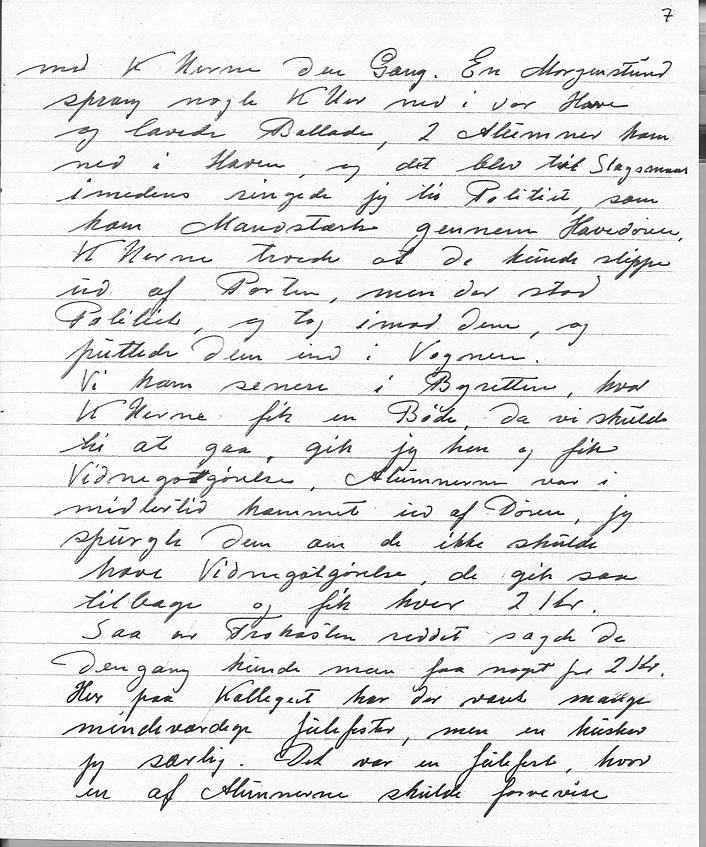 7
med K Uerne den Gang. En Morgenstund
sprang nogle K Uer ned i vor Have
og lavede Ballade, 2 Alumner kom
ned i Haven, og det blev til Slagsmaal
imedens ringede jeg til Politiet, som
kom Mandstærk gennem Havedøren,
K Uerne troede at de kunde slippe
ud af Porten, men der stod
Politiet, og tog imod dem, og
puttede dem ind i Vognen.
Vi kom senere i Byretten, hvor
K Uerne fik en Bøde, da vi skulde
til at gaa, gik jeg hen og fik
Vidnegodtgørelse, Alumnerne var i
midlertid kommet ud af Døren, jeg
spurgte dem om de ikke skulde
have Vidnegotgørelse, de gik saa
tilbage og fik hver 2 Kr.
Saa er Frokosten reddet sagde de
dengang kunde man faa noget for 2 Kr.
Her paa Kolleget har der været mange
mindeværdige Julefester, men en husker
jeg særlig. Det var en Julefest, hvor
en af Alumnerne skulde forevise